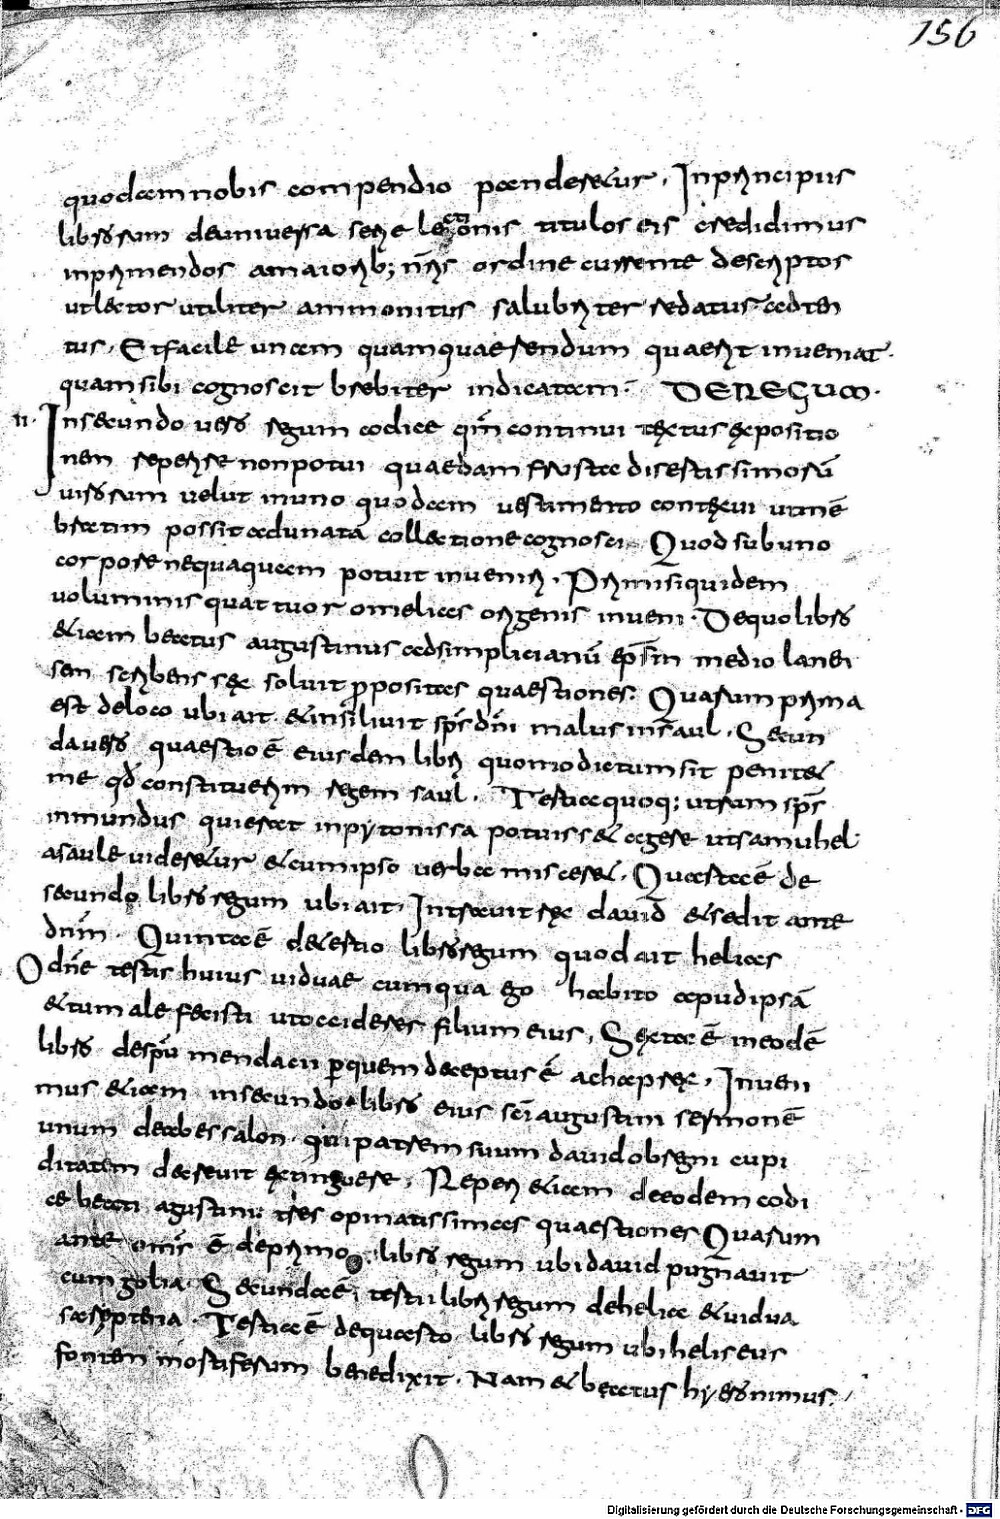 156
quodam nobis compendio panderetur. In principiis
librorum de universa serie lectionis titulos eis credidimus
inprimendos a maiorib; nr̄is ordine currente descriptos
ut lector utiliter ammonitus salubriter reddatur adten
tus. Et facile unam quamquae rerum dum quaerit inveniat.
quam sibi cognoscit breviter indicatam. DE REGUM.
II. In secundo vero regum codice qm̄ continui textus expositio
nem reperire non potui quaedam frusta disertissimorū
virorum velut in uno quodam vestimento contexui ut in mē
bratim possit adunata collectione cognosci. Quod sub uno
corpore nequaquam potuit inveniri. Primi siquidem
voluminis quattuor omelias origenis inveni. De quo libro
etiam beatus augustinus ad simplicianū ep̄m mediolanen
sen scribens sex soluit p̄positas quaestiones. Quarum prima
est de loco ubi ait. et insilivit sp̄s dn̄i malus in saul. Secun
da vero quaestio ē eiusdem libri quomo dictum sit penitet
me qd̄ constituerim regem saul. Tertia quoq; utrum sp̄s
inmundus qui erat in pytonissa potuisset agere ut samuhel
a saule videretur et cum ipso verba misceret. Quarta ē de
secundo libro regum ubi ait. Intravit rex david et sedit ante
dn̄m. Quinta ē de tertio libro regum quod ait helias
O dn̄e testis huius viduae cum qua ego habito apud ipsā
et tu male fecisti ut occideres filium eius. Sexta ē in eodē
libro de sp̄u mendacii p̄ quem deceptus ē achap rex. Inveni
mus etiam in secundo libro eius sc̄i augustini sermonē
unum de abessalon qui patrem suum david ob regni cupi
ditatem decrevit extinguere. Reperi etiam de eodem codi
ce beati agustini tres opinatissimas quaestiones Quarum
ante om̄s ē de primo libro regum ubi david pugnavit
cum golia. Secunda ē tertii libri regum de helia et vidua
sareptena. Tertia ē de quarto libro regum ubi heliseus
fontem mortiferum benedixit. Nam et beatus hyeronimus.
Digitalisierung gefördert durch die Deutsche Forschungsgemeinschaft - DFG